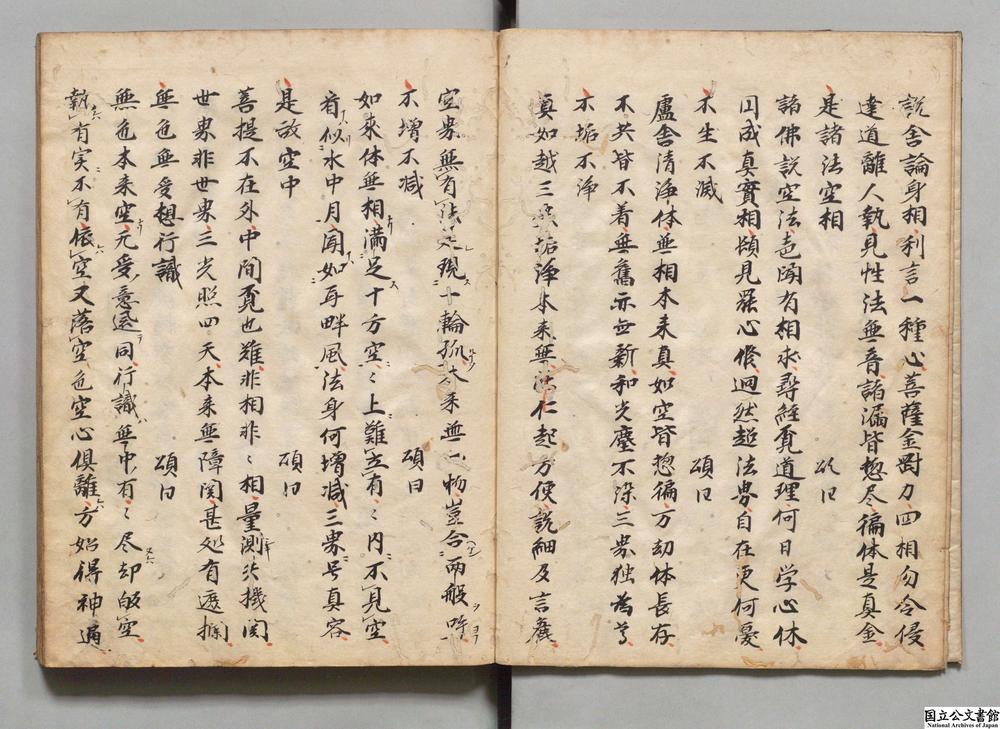 説舎論身相利言一種心菩薩金剛力四相勿令侵
達道離人執見性法無音諸漏皆惣尽徧体是真金
是諸法空相 頌曰
諸佛説空法声聞有相求尋経覓道理何日学心休
円成真實相頓見罷心修迥然超法界自在更何憂
不生不滅 頌曰
盧舎清浄体無相本来真如空皆惣徧万劫体長存
不共皆不着無舊亦無新和光塵不染三界独為尊
不垢不浄
真如越三界垢浄本来無能仁起方便説細及言麁
空界無有法是現一輪孤本来無一物豈合両般呼
不増不減 頌曰
如来体無相満足十方空々上難立有々内不見空
看似水中月聞如耳畔風法身何増減三界号真容
是故空中 頌曰
菩提不在外中間覓也難非相非々相量測失機関
世界非世界三光照四天本来無障関甚処有遮攔
無色無受想行識 頌曰
無色本来空無受意還同行識無中有々尽却皈空
執有実不有依空又落空色空心倶離方始得神通
国立公文書館
National Archives of Japan